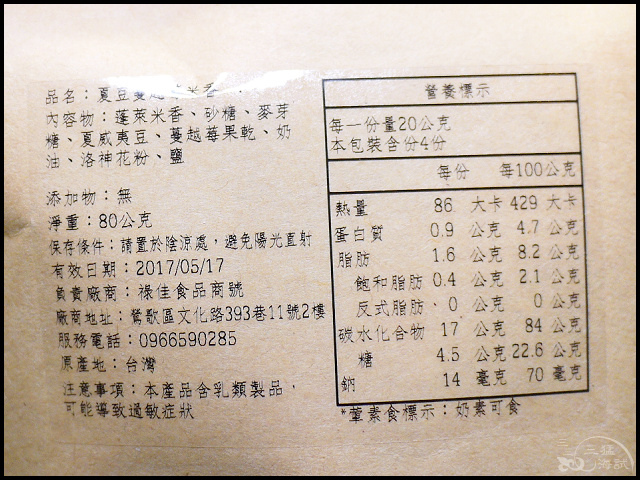 品名：夏豆蔓越 米香
內容物：蓬萊米香、砂糖、麥芽
糖、夏威夷豆、蔓越莓果乾、奶
油、洛神花粉、鹽
添加物：無
淨重：80公克
保存條件：請置於陰涼處，避免陽光直射
有效日期：2017/05/17
負責廠商：祿佳食品商號
廠商地址：鶯歌區文化路393巷11號2樓
服務電話：0966590285
原產地：台灣
注意事項：本產品含乳類製品，
可能導致過敏症狀
營養標示
每一份量20公克
本包裝含份4份
每份 每100公克
熱量 86 大卡 429 大卡
蛋白質 0.9 公克 4.7 公克
脂肪 1.6 公克 8.2 公克
飽和脂肪 0.4 公克 2.1 公克
反式脂肪 0 公克 0 公克
碳水化合物 17 公克 84 公克
糖 4.5 公克 22.6 公克
鈉 14 毫克 70 毫克
*葷素食標示：奶素可食